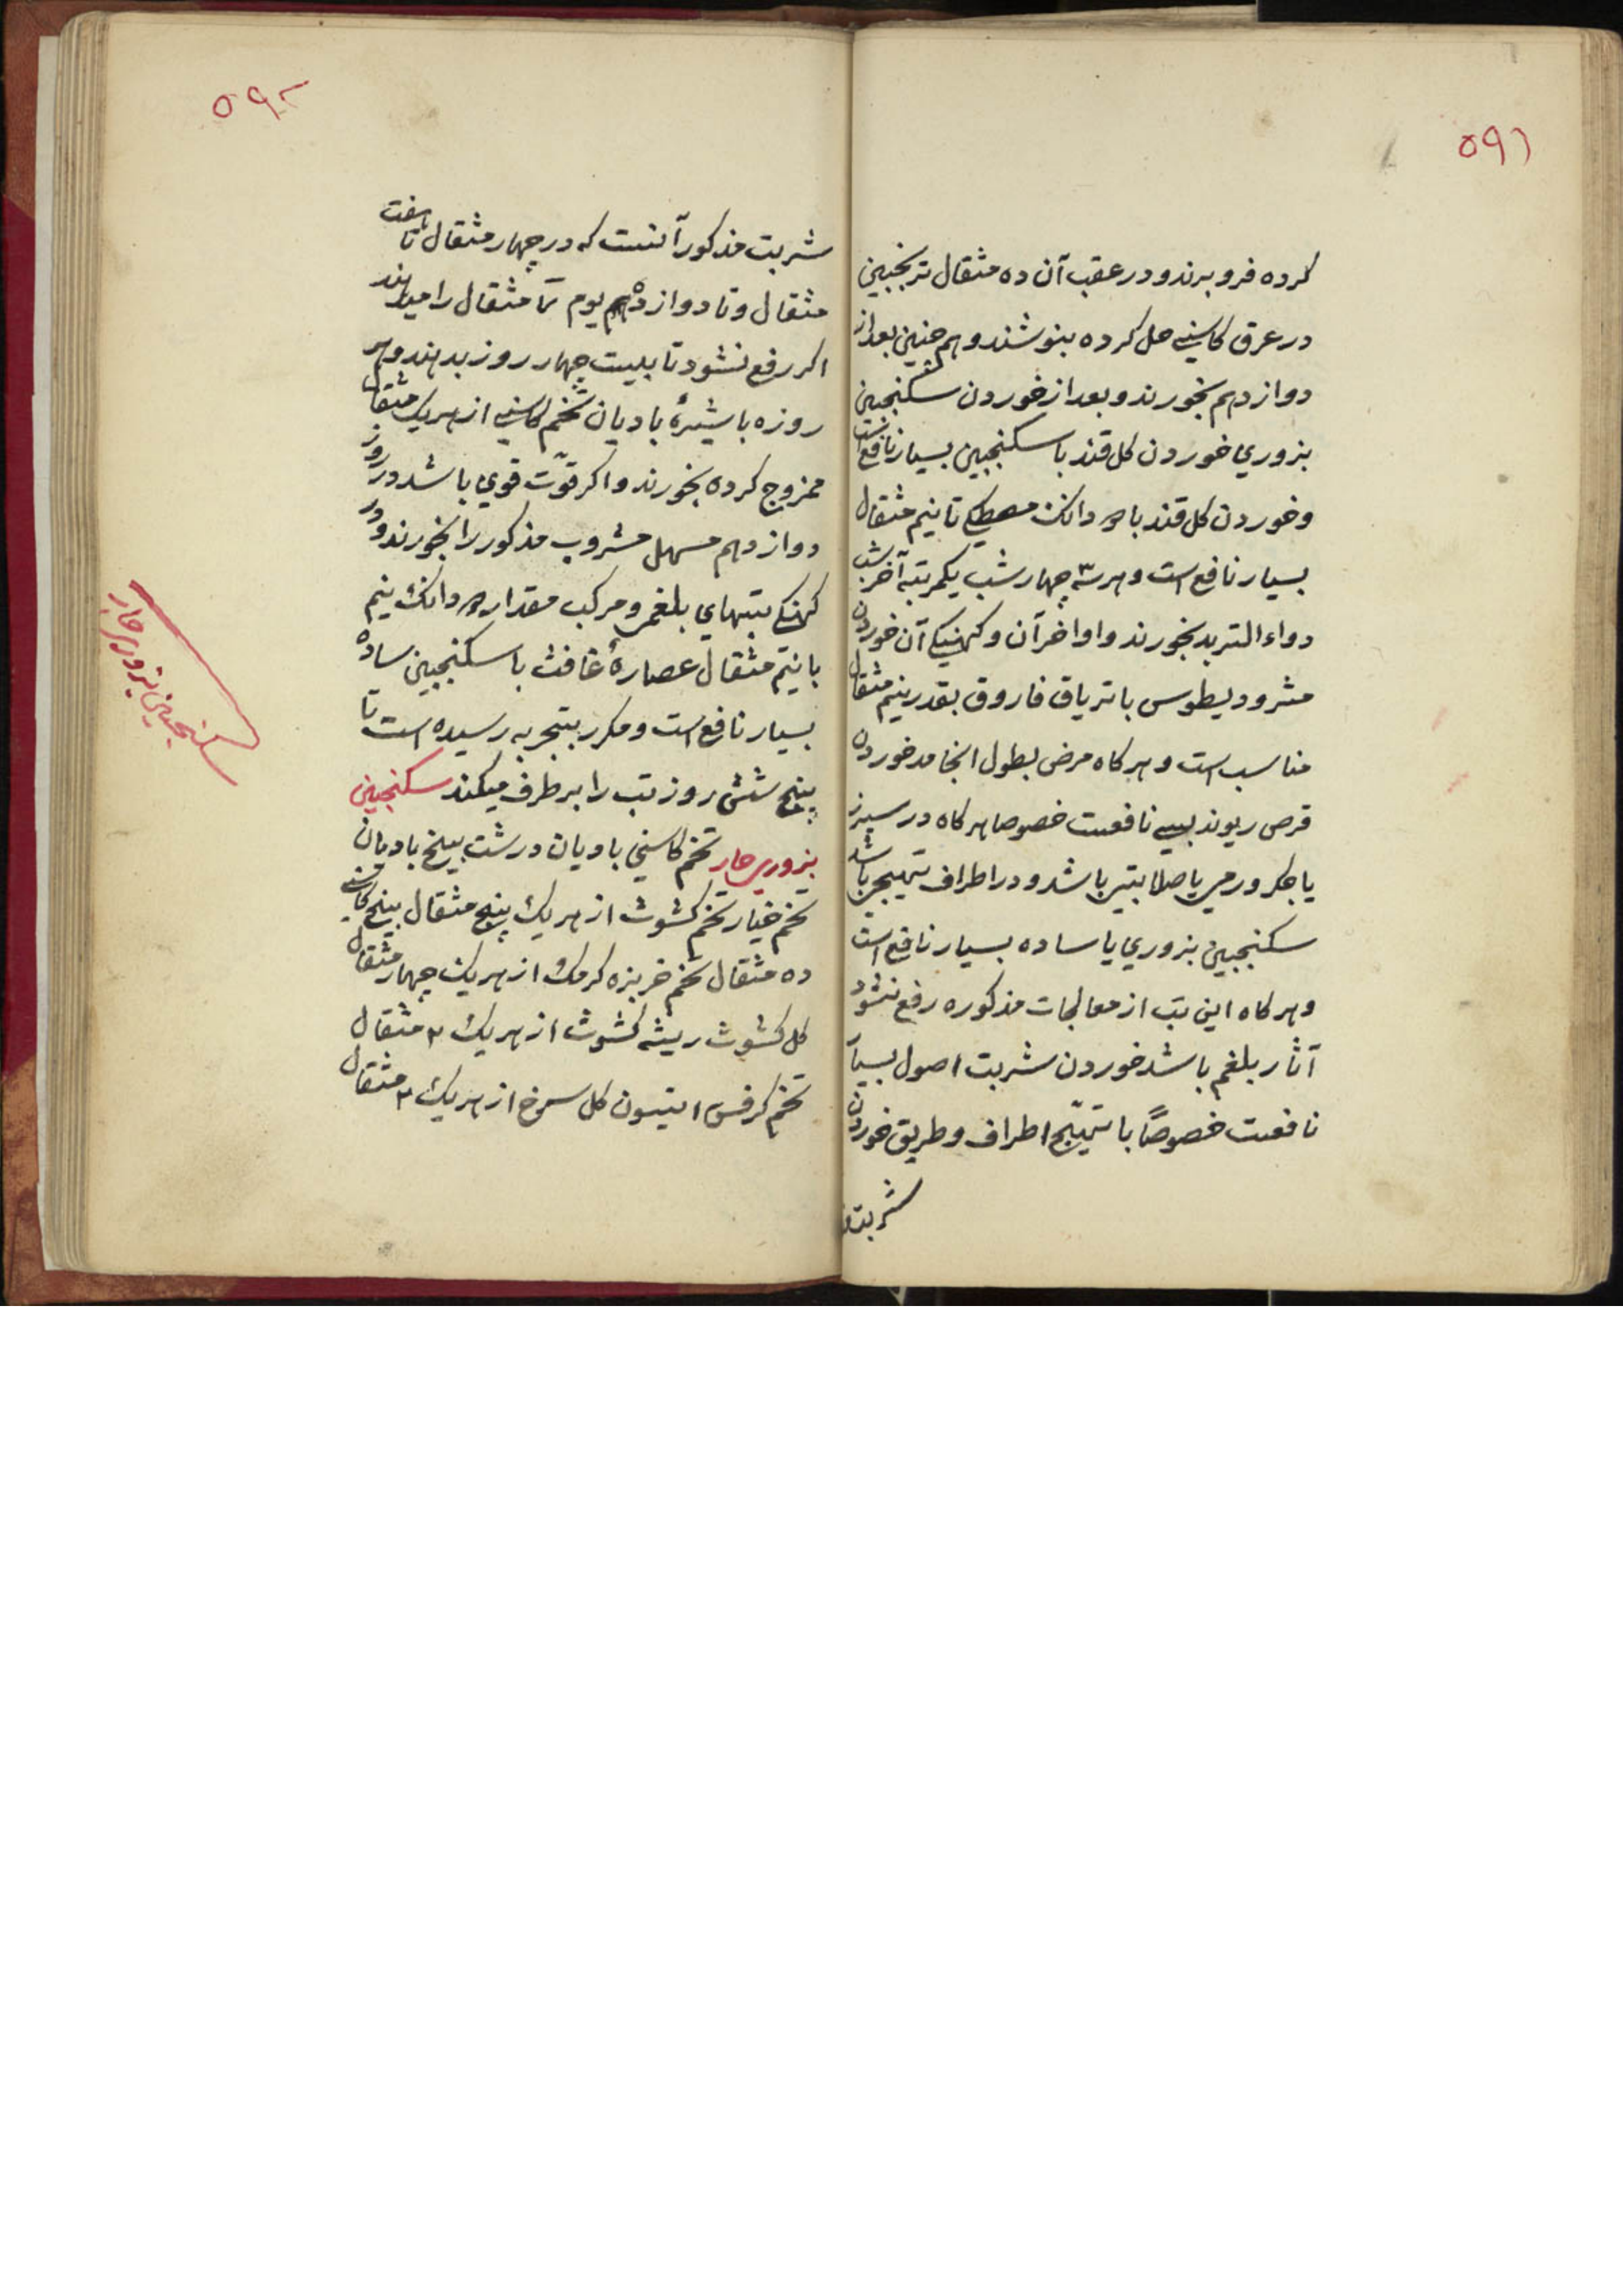 ۵۹۱
کرده فروبرند و در عقب آن ده مثقال ترنجبین
در عرق کاسنی حل کرده بنوشند و هم چنین بعد از
دوازدهم بخورند و بعد از خوردن سکنجبین
بزوري خوردن کل قند با سکنجبین بسیار نافع است
و خوردن کل قند با دانک مصطکی تا نیم مثقال
بسیار نافع است و هر سه چهار شب یکمرتبه آخر شب
دواء التربد بخورند و اواخر آن و کهنیکی آن خوردن
مثرودیطوس یا تریاق فاروق بقدر نیم مثقال
مناسب است و هر کاه مرض بطول انجامد خوردن
قرص ریوند بسی نافعست خصوصا هر کاه در سپرز
یا جکر ورمی یا صلابتی باشد و در اطراف تهیجی باشد
سکنجبین بزوري یا ساده بسیار نافع است
و هر کاه این تب از معالجات مذکوره رفع نشود
آثار بلغم باشد خوردن شربت اصول بسیار
نافعست خصوصًا با تهیّج اطراف و طریق خوردن
شربت
۵۹۲
شربت مذکور آنست که در چهار مثقال تا هفت
مثقال و تا دوازدهم یوم مثقال را میدهند
اکر رفع نشود تا بیست چهار روز بدهند و هر
روزه با شیرۀ بادیان تخم کاسنی از هریک مثقال
ممزوج کرده بخورند و اکر قوّت قوي باشد در روز
دوازدهم مسهل مشروب مذکور را بخورند و در
کهنکی تبهاي بلغمی و مرکب مقدار دانک نیم
یا نیم مثقال عصارۀ غافث با سکنجبین ساده
بسیار نافع است و مکرر بتجربه رسیده است تا
پنج شش روز تب را برطرف میکند سکنجبین
بزوري حار تخم کاسنی بادیان درشت بیخ بادیان
تخم خیار تخم کشوث از هریک پنج مثقال بیخ کاسنی
ده مثقال تخم خربزه کرمک از هریک چهار مثقال
کل کشوث ریشه کشوث از هریک ۳ مثقال
تخم کرفس انیسون کل سرخ از هریک ۲ مثقال
سکنجبین بزوري حار